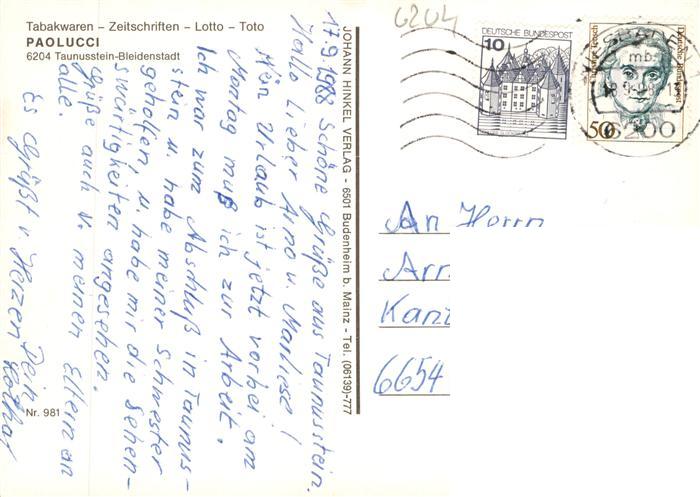 Tabakwaren – Zeitschriften – Lotto – Toto
PAOLUCCI
6204 Taunusstein-Bleidenstadt
17.9.1988 Schöne Grüße aus Taunusstein.
Hallo Lieber Arno u. Marliese!
Mein Urlaub ist jetzt vorbei am
Montag muß ich zur Arbeit.
Ich war zum Abschluß in Taunus-
stein u. habe meiner Schwester
geholfen, u. habe mir die Sehen-
swürtigkeiten angesehen.
Grüße auch v. meinen Eltern an
alle.
Es Grüßt v. Herzen Dein
Lothar
Nr. 981
JOHANN HINKEL VERLAG - 6501 Budenheim b. Mainz - Tel. (06139)-777
6204
DEUTSCHE BUNDESPOST
10
Deutsche Bundespost
50
mb
6200
An Herrn
Arn
Kanz
6654